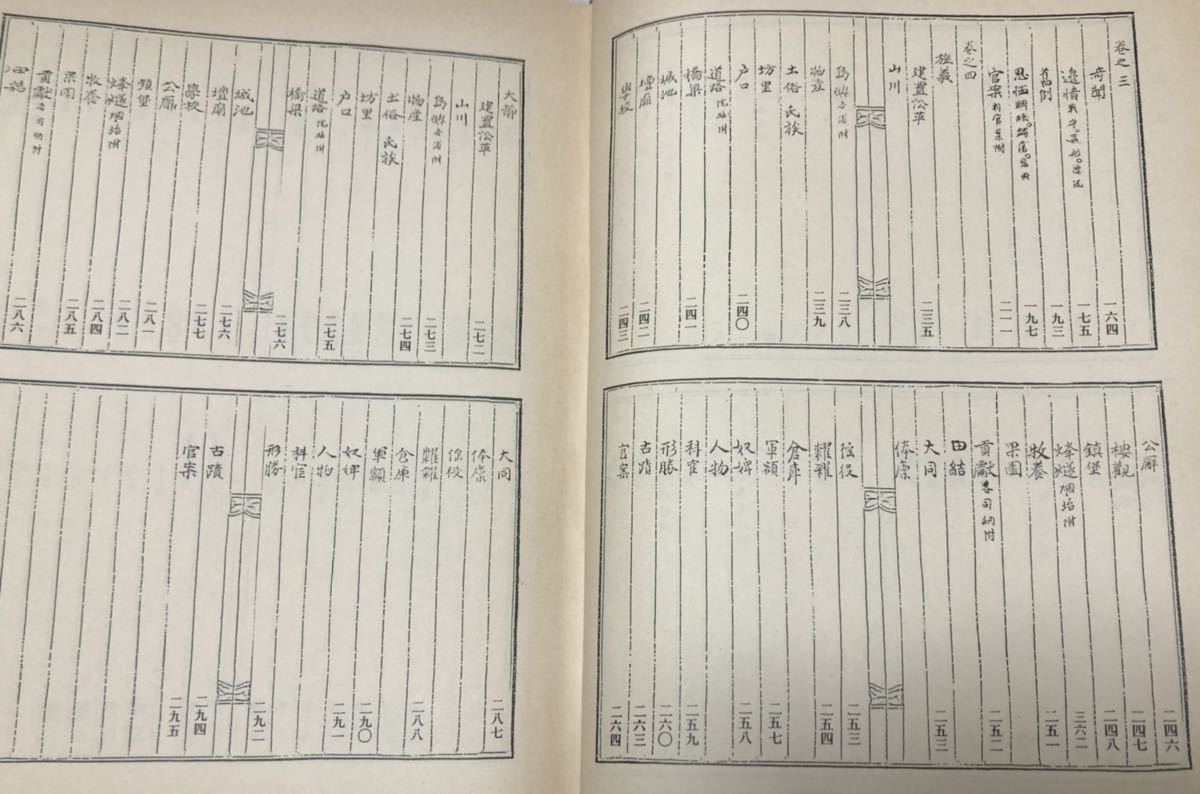 卷之三
奇聞 一六四
邊情 戰守。異船。漂流 一七五
舊例 一九三
恩恤 一九七
官案 判官案附 二一一
卷之四
旌義
建置沿革 二三五
山川
島嶼 方浦附 二三八
物產 二三九
土俗 氏族
坊里
户口 二四〇
道路 院站附
橋梁 二四一
城池
壇廟 二四二
學校 二四三
公廨 二四六
樓觀 二四七
鎮堡 二四八
烽燧 烟坮附 三六二
牧養 二五一
果園
貢獻 各司納附 二五二
田結
大同 二五三
俸廩
徭役 二五三
糶糴 二五四
倉庫
軍額 二五七
奴婢 二五八
人物
科宦 二五九
形勝 二六〇
古蹟 二六三
官案 二六四
大靜
建置沿革 二七二
山川
島嶼 方浦附 二七三
物產 二七四
土俗 氏族
坊里
户口
道路 院站附 二七五
橋梁 二七六
城池
壇廟 二七六
學校 二七七
公廨
鎮堡 二八一
烽燧 烟坮附 二八二
牧養 二八四
果園 二八五
貢獻 各司納附
田結 二八六
大同 二八七
俸廩
徭役
糶糴 二八八
倉庫
軍額 二九〇
奴婢 二九一
人物
科宦
形勝 二九二
古蹟 二九四
官案 二九五